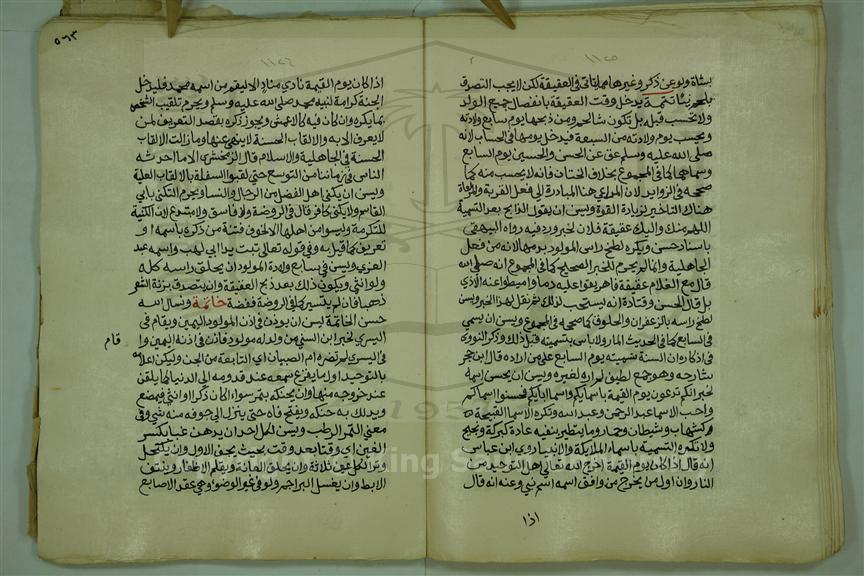 ١١٢٥
بشاة ولو عن ذكر وغيرها مما ياتي في العقيقة لكن لا يجب التصدق
بلحم نيئا تتمة يدخل وقت العقيقة بانفصال جميع الولد
ولا تحسب قبله بل تكون شاة لحم ومن ذبحها يوم سابع ولادته
ويحسب يوم ولادته من السبعة فيدخل يومها في الحساب لانه
صلى الله عليه وسلم عق عن الحسن والحسين يوم السابع
وسماهما كما في المجموع بخلاف الختان فانه لا يحسب منه كما
صححه في الزوايد لان المراعي هنا المبادرة الى فعل القربة والمراعاة
هناك التاخير لزيادة القوة ويسن ان يقول الذابح بعد التسمية
اللهم منك واليك عقيقة فلان لخبر ورد فيه رواه البيهقي
باسناد حسن ويكره لطخ راس المولود بدمها لانه من فعل
الجاهلية وانما لم يحرم للخبر الصحيح كما في المجموع انه صلى الله
قال مع الغلام عقيقة فاهريقوا عليه دما واميطوا عنه الاذى
بل قال الحسن وقتادة انه يستحب ذلك ثم نقل لهذا الخبر ويسن
لطخ راسه بالزعفران والخلوف كما صححه في المجموع ويسن ان يسمى
في السابع كما في الحديث المار ولا باس بتسميته قبل ذلك وذكر النووي
في اذكاره ان السنة تسميته يوم السابع على من اراده قال ابن حجر
شارحه وهو جمع لطيف لم اره لغيره ويسن ان يحسن اسمه
لخبر انكم تدعون يوم القيمة باسمايكم واسما ابايكم فحسنوا اسماكم
واحب الاسما عبد الرحمن وعبد الله وتكره الاسما القبيحة
كشهاب وشيطان وحمار وما يتطير بنفيه عادة كبركة ونجيح
ولا تكره التسمية باسماء الملايكة والانبيا روي ابن عباس
انه قال اذا كان يوم القيمة اخرج الله تعالى اهل التوحيد من
النار وان اول من يخرج من وافق اسمه اسم نبي وعنه انه قال
اذا
٥٦٣
١١٢٦
اذا كان يوم القيمة نادي مناد الا ليقم من اسمه محمد فليدخل
الجنة كرامة لنبيه محمد صلى الله عليه وسلم ويحرم تلقيب الشخص
بما يكره وان كان فيه كالاعمش ويجوز ذكره بقصد التعريف لمن
لا يعرف الا به والالقاب الحسنة لا ينهى عنها وما زالت الالقاب
الحسنة في الجاهلية والاسلام قال الزمخشري الا ما احدثه
الناس في زماننا من التوسع حتى لقبوا السفلة بالالقاب العلية
ويسن ان يكنى اهل الفضل من الرجال والنسا ويحرم التكني بابي
القاسم ولا يكنى كافر قال في الروضة ولا فاسق ولا مبتدع لان الكنية
للتكرمة وليسوا من اهلها الا لخوف فتنة من ذكره باسمه او
تعريف كما قيل به وفي قوله تعالى تبت يدا ابي لهب واسمه عبد
العزي ويسن في سابع ولادة المولود ان يحلق راسه كله
ولو انثى ويكون ذلك بعد ذبح العقيقة وان يتصدق بزنة الشعر
ذهبا فان لم يتيسر كما في الروضة ففضة خاتمة ونسال الله
حسن الخاتمة ليس ان يوذن في اذن المولود اليمين ويقام في
اليسري لخبر ابن السني من ولد له مولود فاذن في اذنه اليمين وا
قام
في اليسري لم تضره ام الصبيان اي التابعة من الجن وليكن اعلامه
بالتوحيد اول ما يقرع سمعه عند قدومه الى الدنيا كما يلقن
عند خروجه منها وان يحنكه بتمر سواء اكان ذكرا او انثى فيمضغ
ويدلك به حنكه ويفتح فاه حتى ينزل الى جوفه منه شي وفي
معنى التمر الرطب ويسن لكل احد ان يدهن غبا بكسر
الغين اي وقتا بعد وقت بحيث يجف الاول وان يكتحل
وترا لكل عين ثلاثة وان يحلق العانة ويقلم الاظفار وينتف
الابط وان يغسل البراجم ولو في غير الوضوء وهي عقد الاصابع